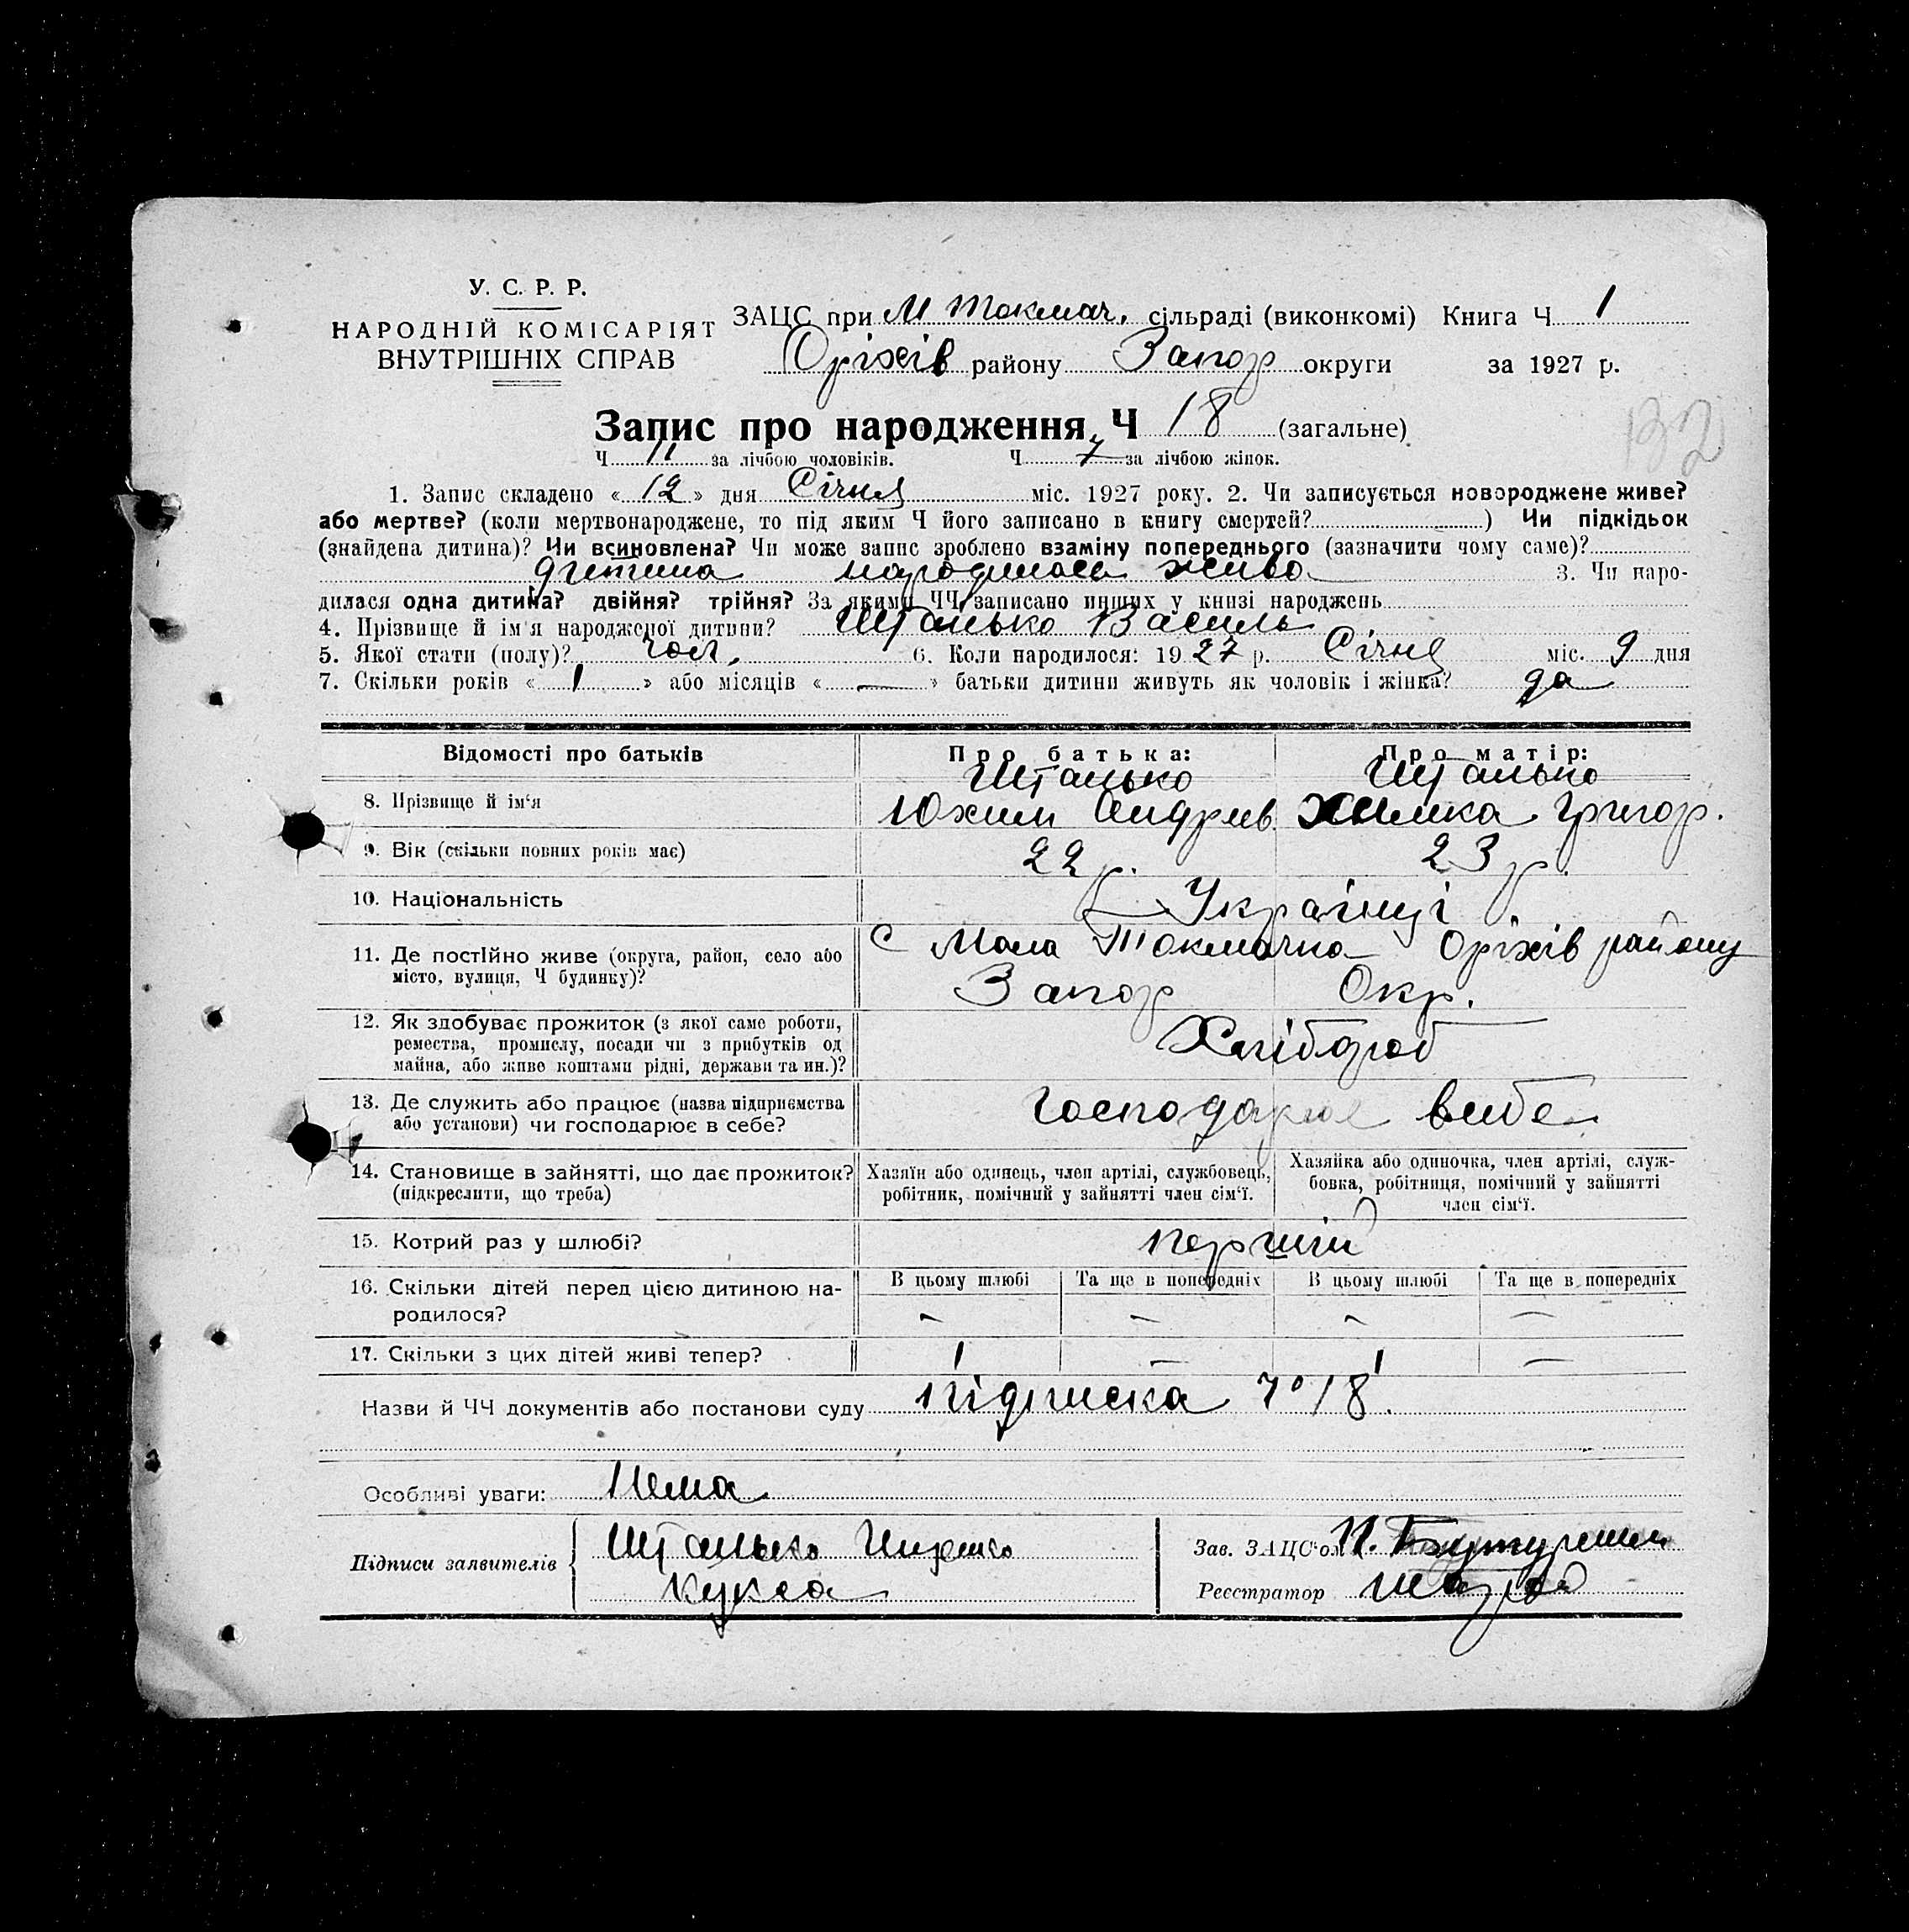 У. С. Р. Р.
НАРОДНІЙ КОМІСАРІЯТ
ВНУТРІШНІХ СПРАВ
ЗАЦС при М Токмач. сільраді (виконкомі) Книга Ч 1
Оріхів району Запор округи за 1927 р.
Запис про народження, Ч 18 (загальне)
132
Ч 11 за лічбою чоловіків. Ч 7 за лічбою жінок.
1. Запис складено « 12 » дня Січня міс. 1927 року. 2. Чи записується новороджене живе?
або мертве? (коли мертвонароджене, то під яким Ч його записано в книгу смертей? ) Чи підкідьок
(знайдена дитина)? Чи всиновлена? Чи може запис зроблено взаміну попереднього (зазначити чому саме)?
дитина народилася жива 3. Чи наро-
дилася одна дитина? двійня? трійня? За якими ЧЧ записано инших у книзі народжень
4. Прізвище й ім'я народженої дитини? Штанько Василь
5. Якої стати (полу)? чол. 6. Коли народилося: 1927 р. Січня міс. 9 дня
7. Скільки років « 1 » або місяців « — » батьки дитини живуть як чоловік і жінка? да
Відомості про батьків Про батька: Про матір:
Штанько Штанько
8. Прізвище й ім'я Юхим Андрієв. Химка Григор.
9. Вік (скільки повних років має) 22 р. 23 р.
10. Національність Українці
11. Де постійно живе (округа, район, село або С Мала Токмачка Оріхів району
місто, вулиця, Ч будинку)? Запор Окр.
12. Як здобуває прожиток (з якої саме роботи,
ремества, промислу, посади чи з прибутків од Хлібороб
майна, або живе коштами рідні, держави та ин.)?
13. Де служить або працює (назва підприємства Господарює в себе
або установи) чи господарює в себе?
14. Становище в зайнятті, що дає прожиток? Хазяїн або одинець, член артілі, службовець, Хазяйка або одиночка, член артілі, служ-
(підкреслити, що треба) робітник, помічний у зайнятті член сім'ї. бовка, робітниця, помічний у зайнятті
член сім'ї.
15. Котрий раз у шлюбі? перший
16. Скільки дітей перед цією дитиною на- В цьому шлюбі Та ще в попередніх В цьому шлюбі Та ще в попередніх
родилося? — — — —
17. Скільки з цих дітей живі тепер? 1 — 1 —
Назви й ЧЧ документів або постанови суду підписка 18.
Особливі уваги: Нема
Підписи заявителів Штанько Зав. ЗАЦС'ом
Кукса Реєстратор